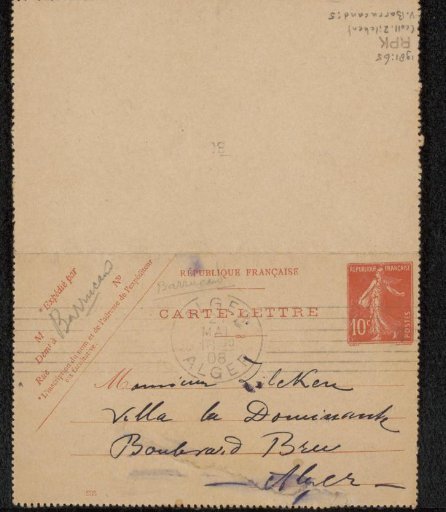 V. Barrucand: 5
(coll. Zilcken)
RPK
1981:65
RÉPUBLIQUE FRANÇAISE
Barrucand
CARTE-LETTRE
*Expédié par
M
Barrucand
Demt à
Rue
No
*L'inscription du nom et de l'adresse de l'expéditeur
est facultative
RÉPUBLIQUE FRANÇAISE
10c
POSTES
ALGER
MAI
08
ALGER
Monsieur Zilcken
Villa la Dominante
Boulevard Bru
Alger